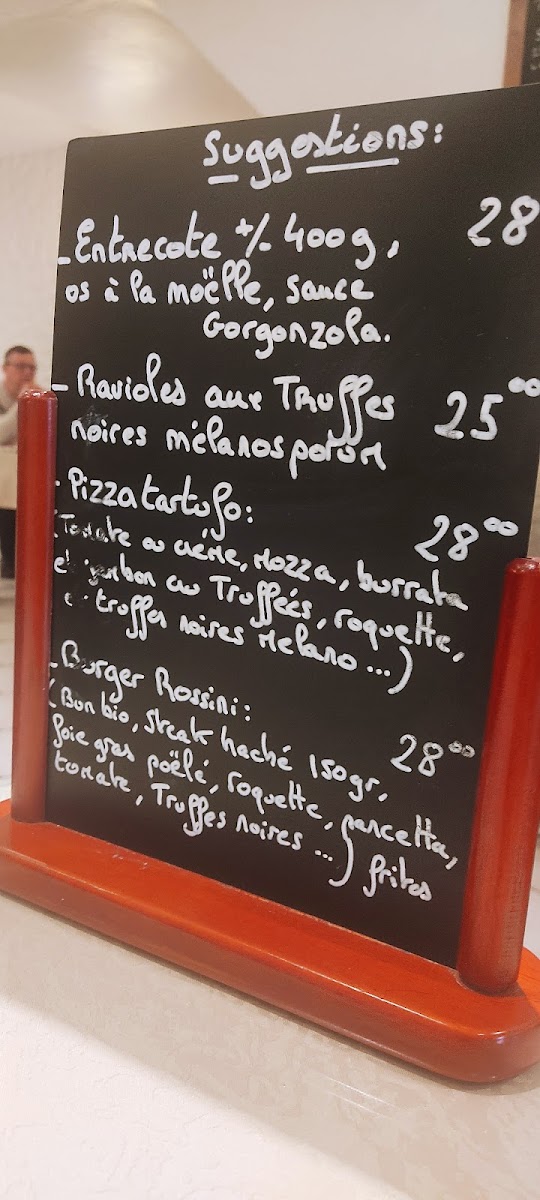 Suggestions:
- Entrecote +/- 400g, 28
os à la moëlle, sauce
Gorgonzola.
- Ravioles aux Truffes 25⁰⁰
noires mélanosporum
- Pizza tartufo: 28⁰⁰
(Tomate ou crème, Mozza, burrata
et jambon aux Truffées, roquette,
et truffes noires Melano ...)
- Burger Rossini: 28⁰⁰
(Bun bio, steak haché 150gr,
foie gras poëlé, roquette, pancetta,
tomate, Truffes noires ...) frites